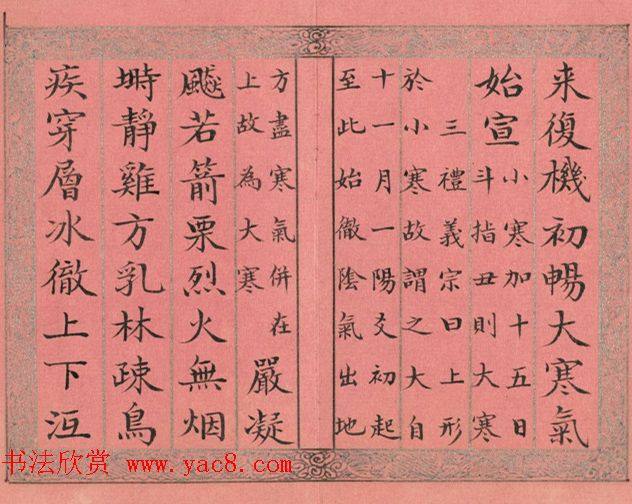 来復機初暢大寒氣
始宣
小寒加十五日
斗指丑則大寒
三禮義宗曰上形
於小寒故謂之大自
十一月一陽爻初起
至此始徹陰氣出地
方盡寒氣併在
上故為大寒
嚴凝
颷若箭栗烈火無烟
塒靜雞方乳林疎鳥
疾穿層冰徹上下沍
书法欣赏 www.yac8.com